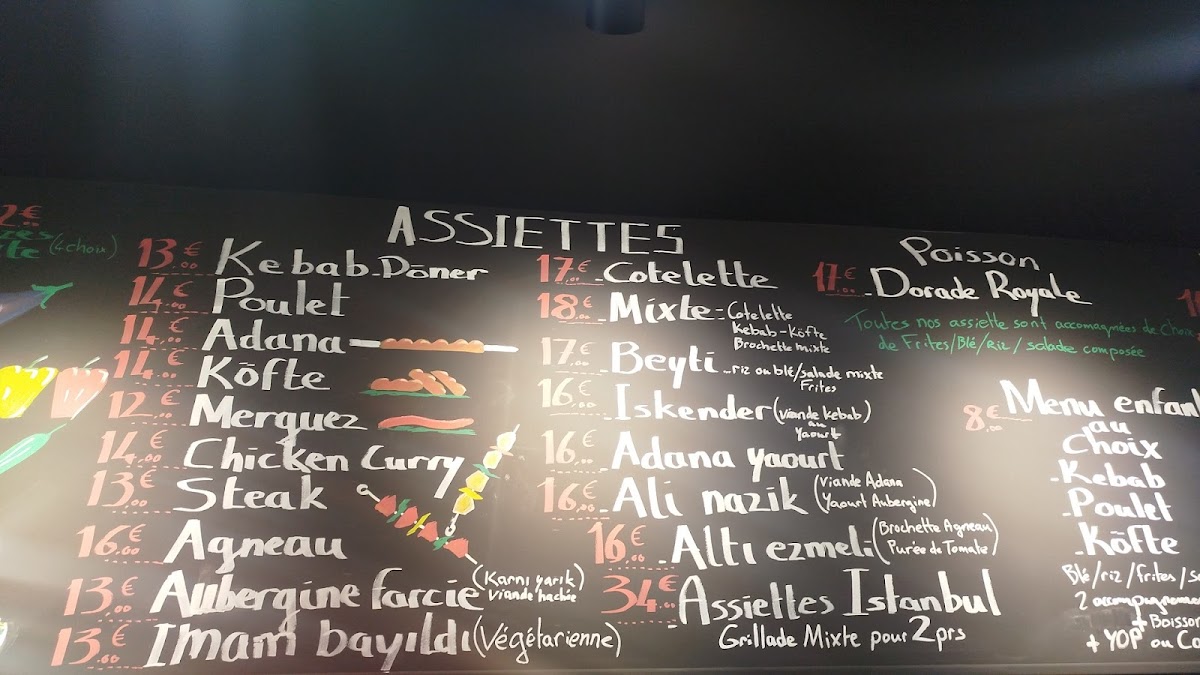 2€
(4 choix)
ASSIETTES
13.€00 Kebab Döner
14.€00 Poulet
14.€00 Adana
14.€00 Köfte
12.€00 Merguez
14.€00 Chicken Curry
13.€00 Steak
16.€00 Agneau
13.€00 Aubergine farcie (Karnı yarik)
viande hachée
13.€00 Imam bayıldı (Végétarienne)
17.€00 Cotelette
18.€00 Mixte: Cotelette
Kebab - Köfte
Brochette mixte
17.€00 Beyti riz ou blé/salade mixte
Frites
16.€00 Iskender (viande kebab)
au
Yaourt
16.€00 Adana yaourt
16.€00 Ali nazik (viande Adana
Yaourt Aubergine)
16.€00 Altı ezmeli (Brochette Agneau)
Purée de Tomate)
34.€00 Assiettes Istanbul
Grillade Mixte pour 2 prs
Poisson
17.€00 Dorade Royale
Toutes nos assiette sont accomagnées de choix
de Frites/Blé/Riz/salade composée
8.€00 Menu enfant
au
Choix
- Kebab
- Poulet
- Köfte
Blé/riz/frites/
2
+ Boisson
+ YOP ou